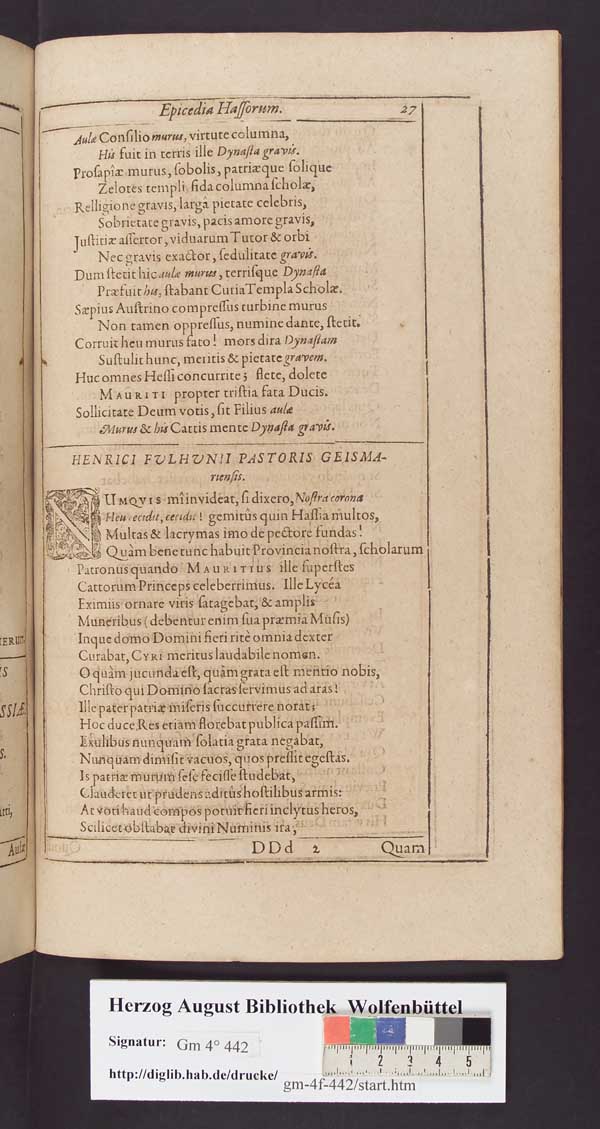 Epicedia Hassorum. 27
Aulæ Consilio murus, virtute columna,
His fuit in terris ille Dynasta gravis.
Prosapîæ murus, sobolis, patriæque solique
Zelotes templi, fida columna scholæ,
Relligione gravis, largâ pietate celebris,
Sobrietate gravis, pacis amore gravis,
Justitiæ assertor, viduarum Tutor & orbi
Nec gravis exactor, sedulitate gravis.
Dum stetit hic aulæ murus, terrisque Dynasta
Præfuit his, stabant Curia Templa Scholæ.
Sæpius Austrino compressus turbine murus
Non tamen oppressus, numine dante, stetit.
Corruit heu murus fato! mors dira Dynastam
Sustulit hunc, meritis & pietate gravem.
Huc omnes Hessi concurrite; flete, dolete
MAURITI propter tristia fata Ducis.
Sollicitate Deum votis, sit Filius aulæ
Murus & his Cattis mente Dynasta gravis.
HENRICI FVLHVNII PASTORIS GEISMA-
riensis.
NUMQVIS mî invideat, si dixero, Nostra corona
Heu cecidit, cecidit! gemitûs quin Hassia multos,
Multas & lacrymas imo de pectore fundas!
Quàm bene tunc habuit Provincia nostra, scholarum
Patronus quando MAURITIUS ille superstes
Cattorum Princeps celeberrimus. Ille Lycéa
Eximiis ornare viris satagebat, & amplis
Muneribus (debentur enim sua præmia Musis)
Inque domo Domini fieri ritè omnia dexter
Curabat, CYRI meritus laudabile nomen.
O quàm jucunda est, quàm grata est mentio nobis,
Christo qui Domino sacras servimus ad aras!
Ille pater patriæ miseris succurrere norat;
Hoc duce, Res etiam florebat publica passim.
Exulibus nunquam solatia grata negabat,
Nunquam dimisit vacuos, quos pressit egestas.
Is patriæ murum sese fecisse studebat,
Clauderet ut prudens aditûs hostilibus armis:
At voti haud compos potuit fieri inclytus heros,
Scilicet obstabat divini Numinis ira,
DDd 2 Quam
Herzog August Bibliothek Wolfenbüttel
Signatur: Gm 4° 442
http://diglib.hab.de/drucke/ gm-4f-442/start.htm
1 2 3 4 5